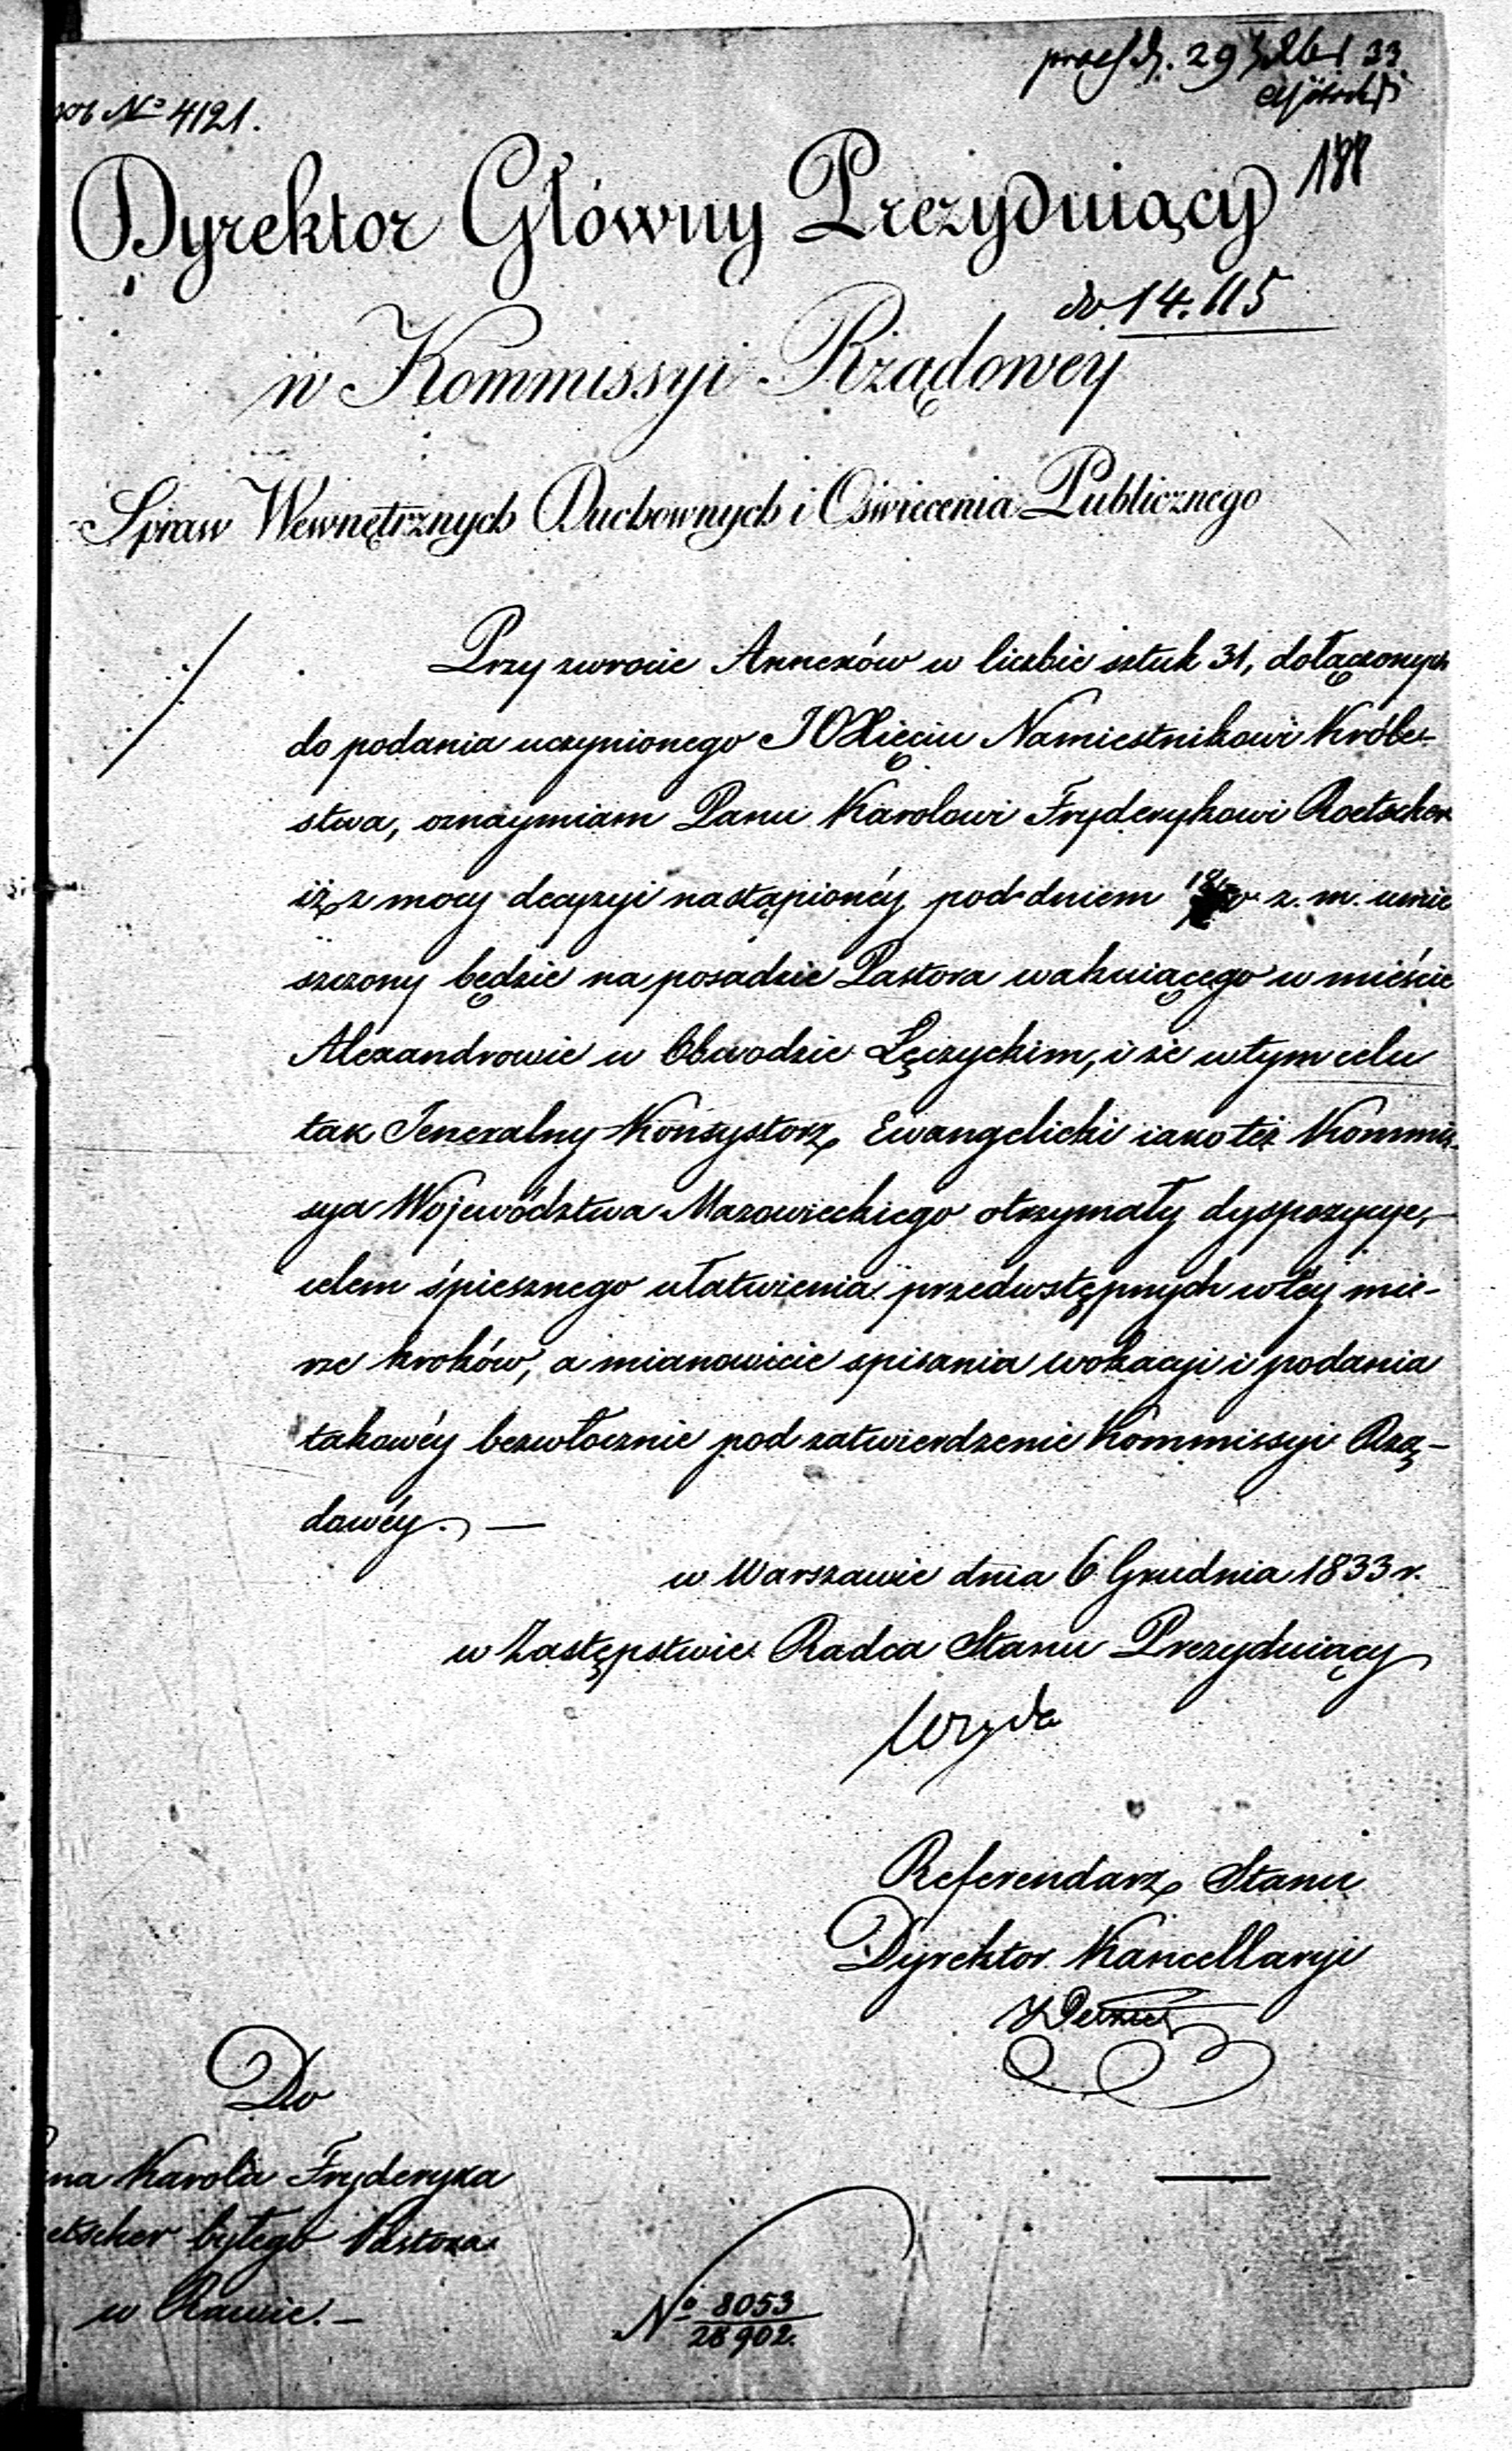 No 4121.
29 33
188
Dyrektor Główny Prezyduiący
do 14.115
w Kommissyi Rządowey
Spraw Wewnętrznych Duchownych i Oświecenia Publicznego
Przy zwrocie Annexów w liczbie sztuk 31, dołączonych
do podania uczynionego JOXięciu Namiestnikowi Króle-
stwa, oznaymiam Panu Karolowi Fryderykowi Roetscher
iż z mocy decyzyi nastąpionéy pod dniem z. m. umie
szczony będzie na posadzie Pastora wakuiącego w mieście
Alexandrowie w Obwodzie Łęczyckim, i że w tym celu
tak Jeneralny Konsystorz Ewangelicki iako też Kommis-
sya Województwa Mazowieckiego otrzymały dyspozycye,
celem śpiesznego ułatwienia przedwstępnych w téy mie-
rze kroków, a mianowicie spisania wokacyi i podania
takowéy bezwłocznie pod zatwierdzenie Kommissyi Rzą-
dowéy. —
w Warszawie dnia 6 Grudnia 1833 r.
w Zastępstwie Radca Stanu Prezyduiący
Referendarz Stanu
Dyrektor Kancellaryi
Do
na Karola Fryderyka
etscher byłego Pastora
w Rawie. —
No 8053
28902.